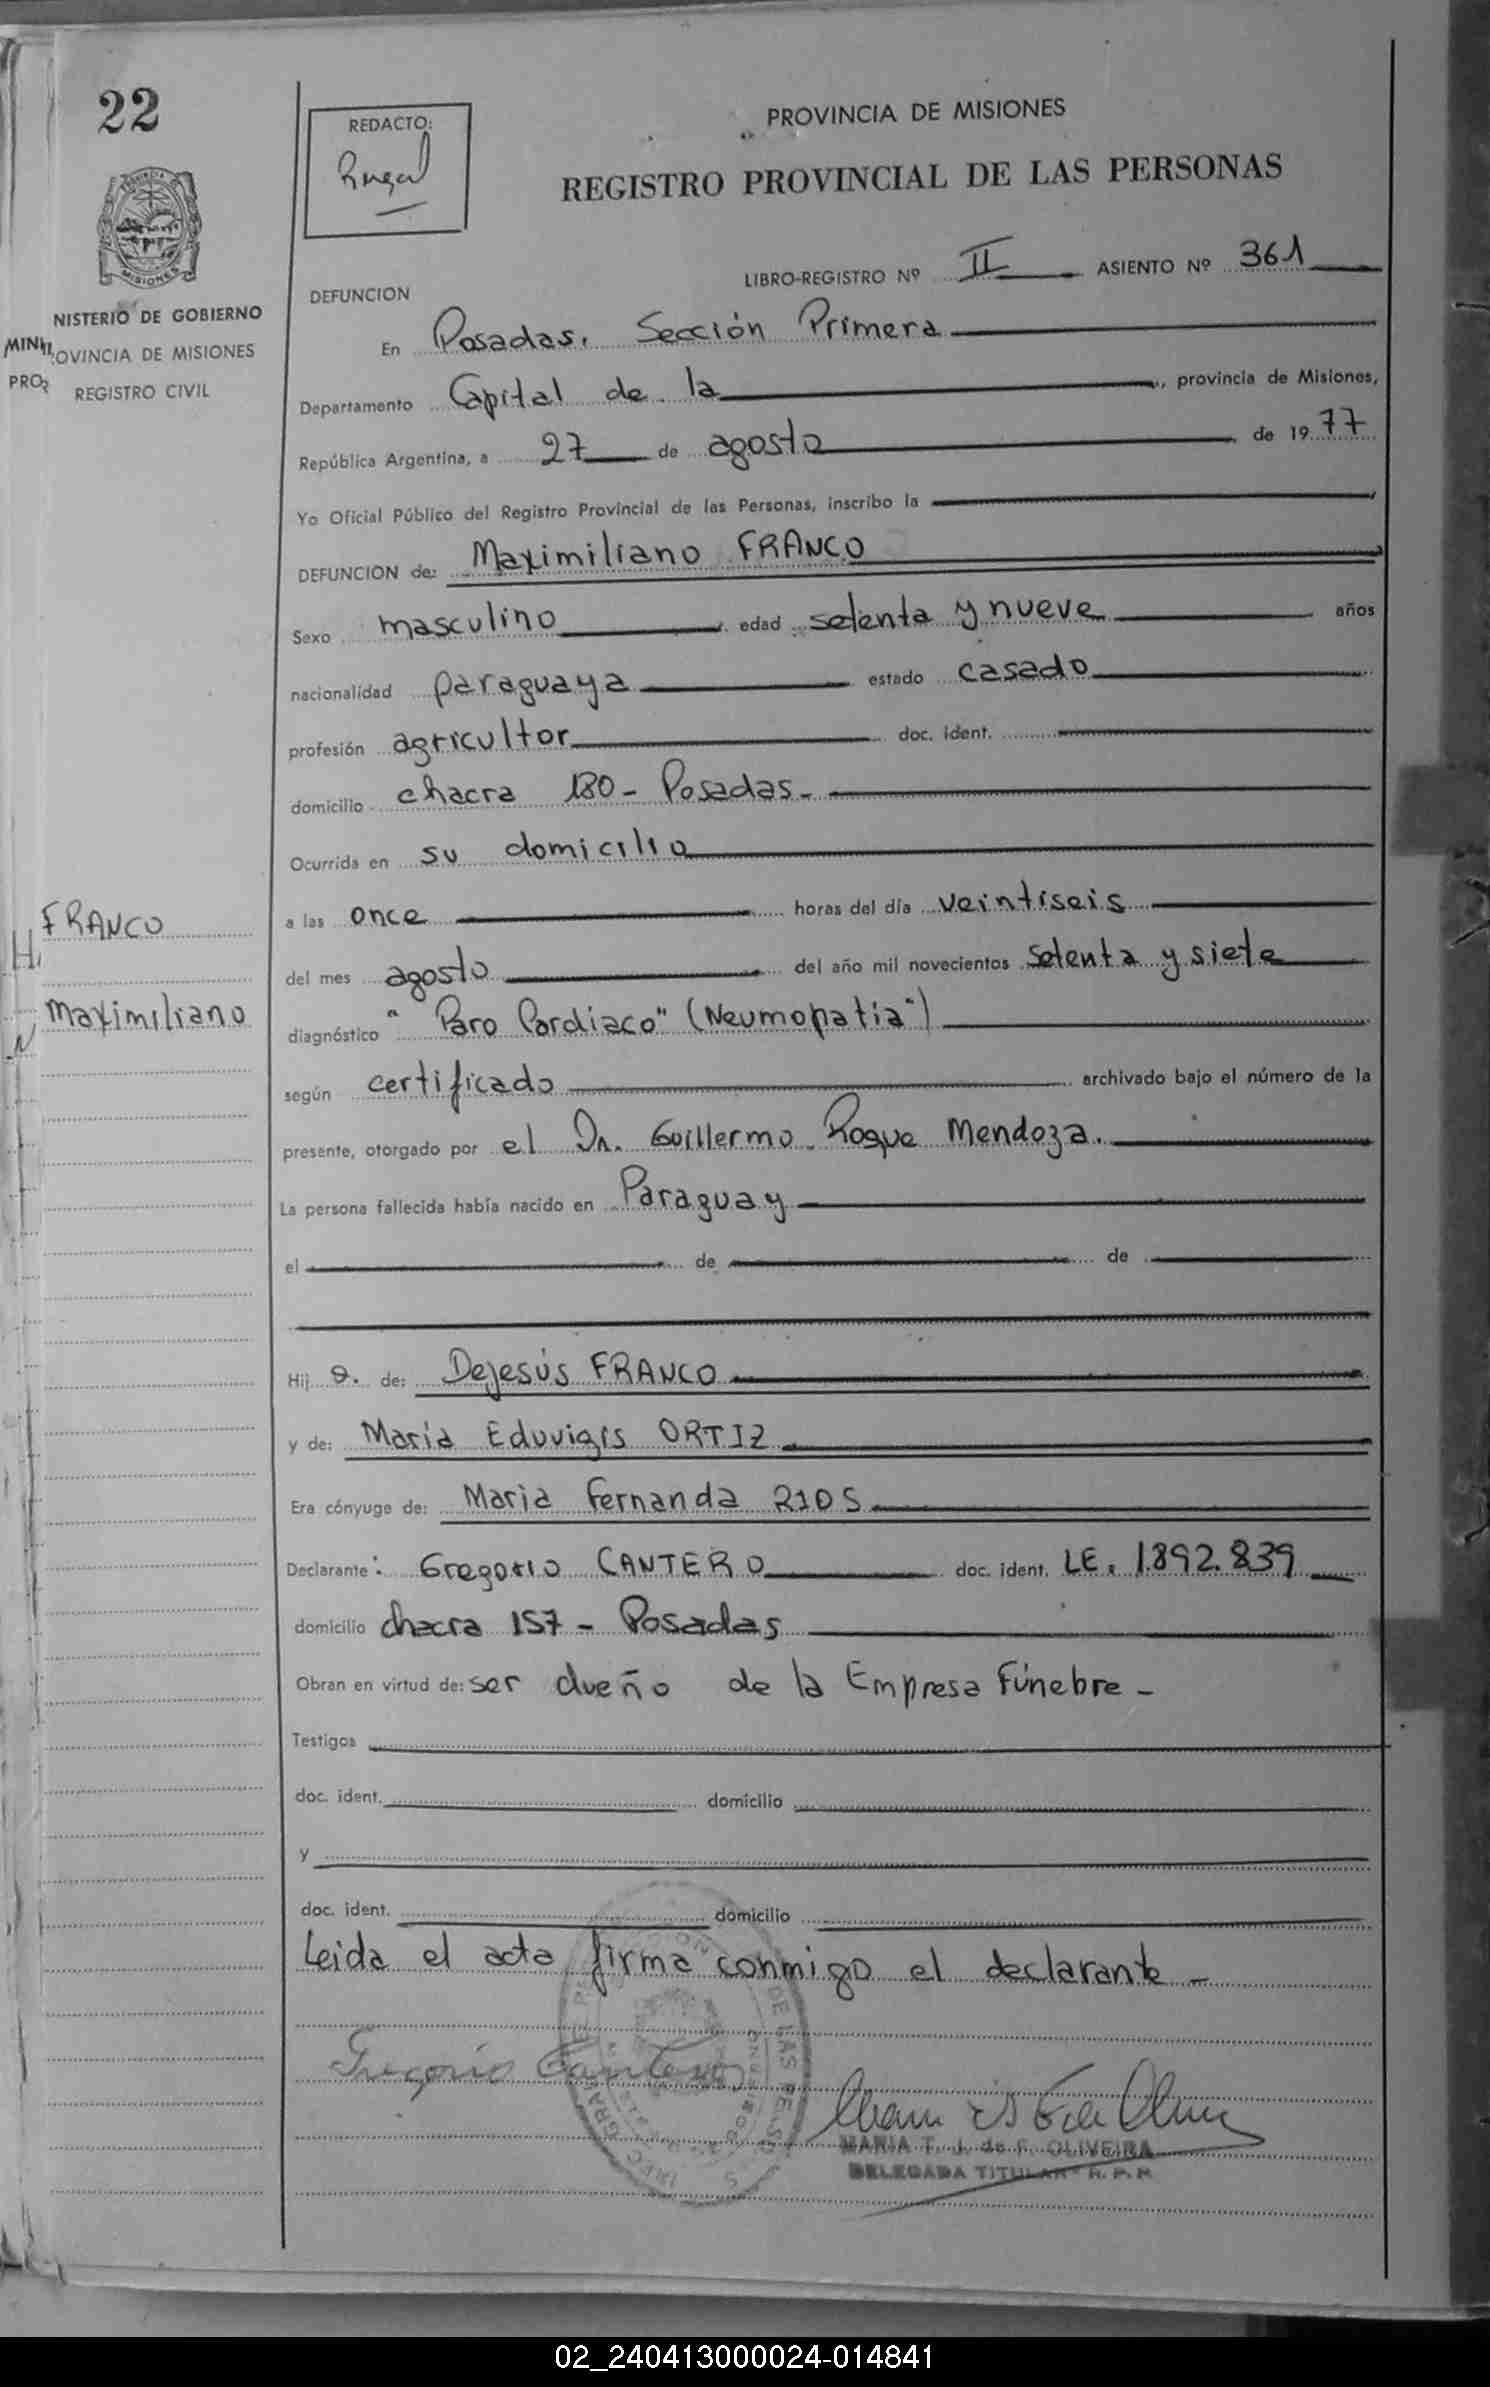 22
REDACTO:
PROVINCIA DE MISIONES
REGISTRO PROVINCIAL DE LAS PERSONAS
PROVINCIA
MISIONES
NISTERIO DE GOBIERNO
OVINCIA DE MISIONES
REGISTRO CIVIL
LIBRO-REGISTRO Nº II ASIENTO Nº 361
DEFUNCION
En Posadas. Sección Primera
Departamento Capital de la, provincia de Misiones,
República Argentina, a 27 de agosto de 1977
Yo Oficial Público del Registro Provincial de las Personas, inscribo la
DEFUNCION de: Maximiliano FRANCO
Sexo masculino edad setenta y nueve años
nacionalidad paraguaya estado casado
profesión agricultor doc. ident.
domicilio chacra 180 - Posadas -
Ocurrida en su domicilio
FRANCO
Maximiliano
a las once horas del día veintiseis
del mes agosto del año mil novecientos setenta y siete
diagnóstico " Paro Cardiaco" (Neumopatia")
según certificado archivado bajo el número de la
presente, otorgado por el Dr. Guillermo Roque Mendoza.
La persona fallecida había nacido en Paraguay
el de de
Hij o. de: Dejesús FRANCO
y de: Maria Eduvigis ORTIZ
Era cónyuge de: Maria Fernanda RIOS
Declarante: Gregorio CANTERO doc. ident. LE. 1.892.839
domicilio chacra 157 - Posadas
Obran en virtud de: ser dueño de la Empresa Fúnebre -
Testigos
doc. ident. domicilio
y
doc. ident. domicilio
Leida el acta firma conmigo el declarante -
Gregorio Cantero
MARIA T. J. de F. OLIVEIRA
DELEGADA TITULAR R. P. P.
02_240413000024-014841